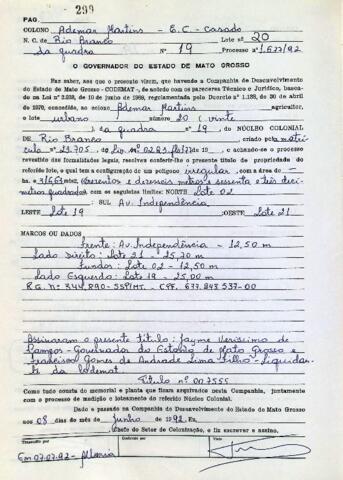 PAG. 299
COLONO Ademar Martins - E.C. - Casado
N. C. de Rio Branco Lote nº 20
da quadra Nº 19 Processo nº 1.677/92
O GOVERNADOR DO ESTADO DE MATO GROSSO
Faz saber, aos que o presente virem, que havendo a Companhia de Desenvolvimento
do Estado de Mato Grosso - CODEMAT -, de acordo com os pareceres Técnico e Jurídico, basea-
do na Lei nº 2.939, de 10 de junho de 1969, regulamentada pelo Decreto nº 1.138, de 30 de abril
de 1970, concedido, ao colono Ademar Martins agricultor,
o lote urbano número 20 (vinte
) da quadra nº 19. do NÚCLEO COLONIAL
DE Rio Branco, criado pela matrí-
cula nº 23.705. do Liv. nº 02 de 19 , e achando-se o processo
revestido das formalidades legais, resolveu conferir-lhe o presente título de propriedade do
referido lote, o qual tem a configuração de um polígono irregular, com a área de
(trezentos e dezesseis metros e sessenta e três decí-
metros quadrados com os seguintes limites: NORTE Lote 02
: SUL Av. Independência
LESTE Lote 19 :OESTE Lote 21
MARCOS OU DATAS
Frente: Av. Independência - 12,50 m
Lado Direito: Lote 21 - 25,70 m
Fundos: Lote 02 - 12,50 m
Lado Esquerdo: Lote 19 - 25,00 m
R.G. nº 344.820-SSP/MT. - CPF. 677.843.537-00
Assinaram o presente título: Jayme Veríssimo de
Campos - Governador do Estado de Mato Grosso e
Francisco Gomes de Andrade Lima Filho - Liquidan-
te da Codemat
Título nº 007555
Como tudo consta do memorial e planta que ficam arquivados nesta Companhia, juntamente
com o processo de medição e loteamento do referido Núcleo Colonial.
Dado e passado na Companhia de Desenvolvimento do Estado de Mato Grosso
aos 08 dias do mês de Junho 1992. Eu,
Chefe do Setor de Colonização, o fiz escrever e assino.
Transcrito por Conferido por Visto
Em 07.07.92 -